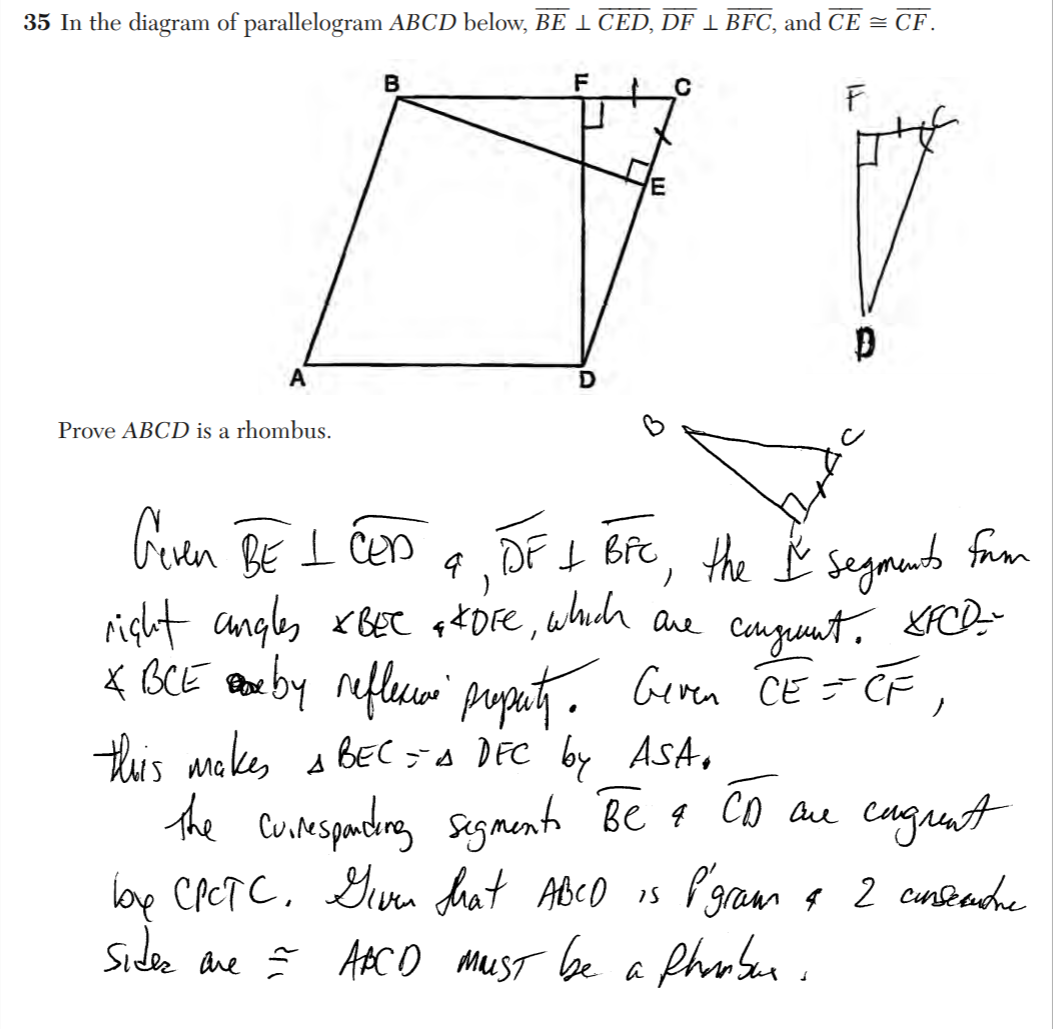 35 In the diagram of parallelogram ABCD below, BE ⊥ CED, DF ⊥ BFC, and CE ≅ CF.
B F C
E
A D
F C
D
Prove ABCD is a rhombus.
B C
Given BE ⊥ CED &, DF ⊥ BFC, the ⊥ segments form
right angles ∡BEC & ∡DFC, which are congruent. ∡FCD ≅
∡BCE by reflexive property. Given CE ≅ CF,
this makes △BEC ≅ △DFC by ASA.
The corresponding segments BC & CD are congruent
by CPCTC. Given that ABCD is P'gram & 2 consecutive
sides are ≅ ABCD must be a Rhombus.